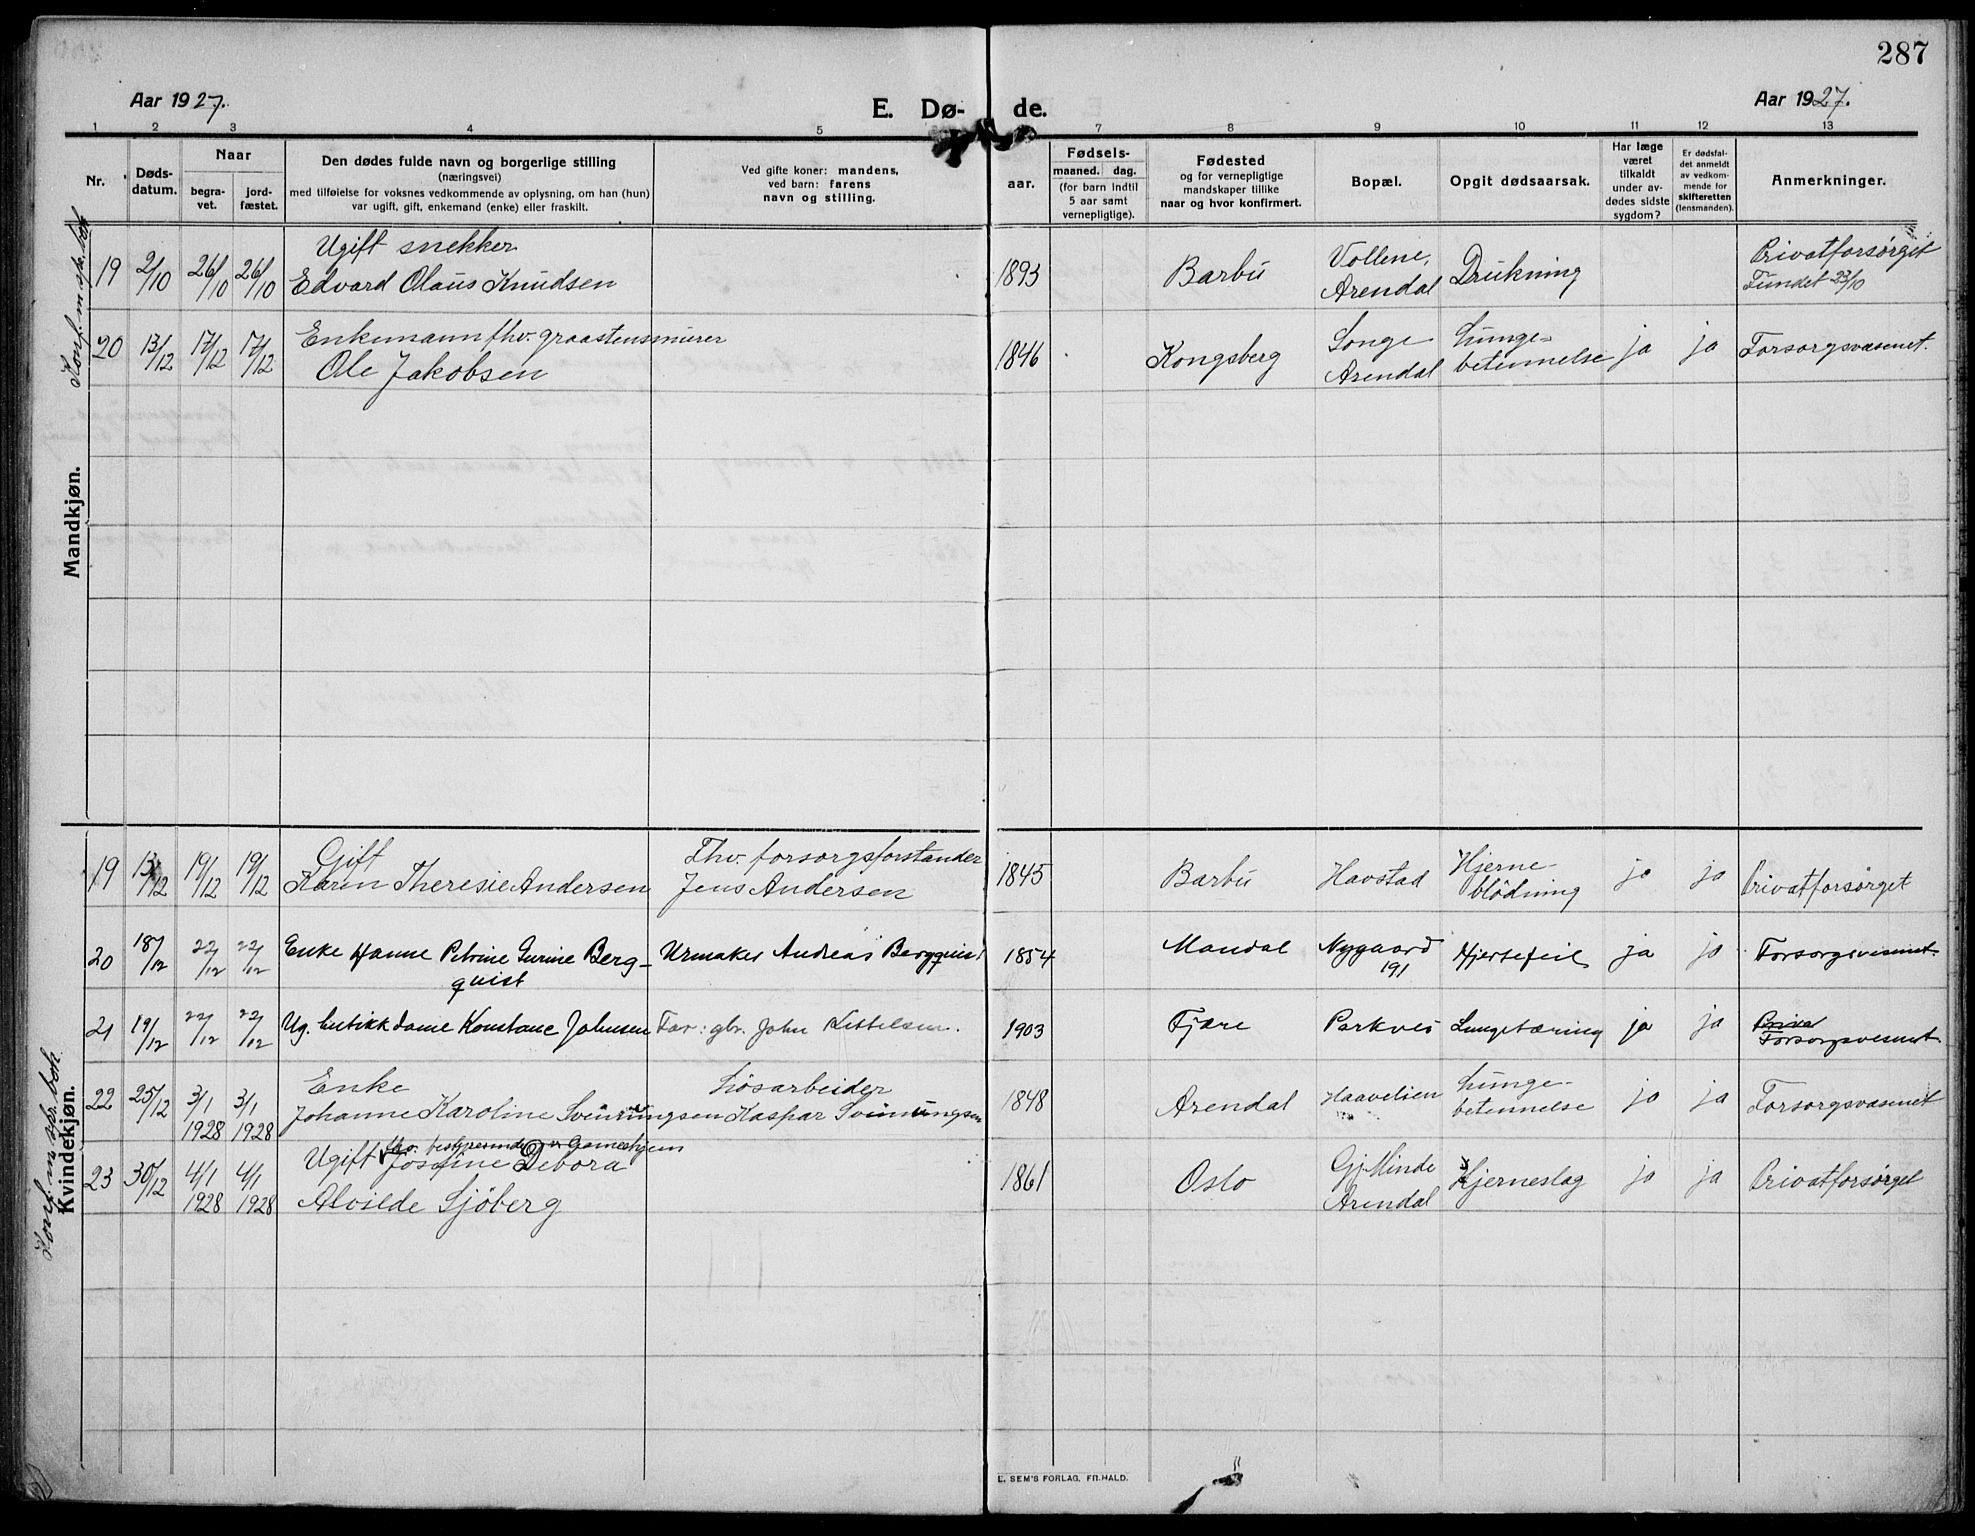 287
Aar 1927.
E. Dø- de.
Aar 1927.
1 2 3 4 5 7 8 9 10 11 12 13
Nr.
Døds-
datum.
Naar
begra-
vet.
jord-
fæstet.
Den dødes fulde navn og borgerlige stilling
(næringsvei)
med tilføielse for voksnes vedkommende av oplysning, om han (hun)
var ugift, gift, enkemand (enke) eller fraskilt.
Ved gifte koner: mandens,
ved barn: farens
navn og stilling.
aar.
Fødsels-
maaned. dag.
(for barn indtil
5 aar samt
vernepligtige).
Fødested
og for vernepligtige
mandskaper tillike
naar og hvor konfirmert.
Bopæl.
Opgit dødsaarsak.
Har læge
været
tilkaldt
under av-
dødes sidste
sygdom?
Er dødsfal-
det anmeldt
av vedkom-
mende for
skifteretten
(lensmanden).
Anmerkninger.
Mandkjøn.
Konf. m
Ugift snekker
19 2/10 26/10 26/10 Edvard Olaus Knudsen 1893 Barbu Vollene, Arendal Drukning Privatforsørget
Fundet 23/10
Enkemann fhv. graastensmurer
20 13/12 17/12 17/12 Ole Jakobsen 1846 Kongsberg Songe Arendal Lunge-
betennelse ja ja Forsorgsvæsenet.
Kvindekjøn.
Konf. m
Gift Fhv. forsorgsforstander
19 13/12 19/12 19/12 Karen Theresie Andersen Jens Andersen 1845 Barbu Havstad Hjerne-
blödning ja ja Privatforsørget
20 18/12 22/12 22/12 Enke Hanne Petrine Gurine Berg-
quist Urmaker Andreas Bergquist 1854 Mandal Nygaard
191 Hjertefeil ja ja Forsorgsvesenet.
21 19/12 22/12 22/12 Ug. butikkdame Konstanse Johnsen Far: gbr. John Kittelsen. 1903 Fjære Parkvei Lungetæring ja ja Priva
Forsorgsvesenet.
Enke Løsarbeider
22 25/12 3/1 1928 3/1 1928 Johanne Karoline Svenungsen Kaspar Svenungsen 1848 Arendal Haavelien Lunge-
betennelse ja ja Forsorgsvæsenet
fhv. bestyrerinde Gamlehjem
23 30/12 4/1 1928 4/1 1928 Ugift Josefine Debora
Alvilde Sjöberg 1861 Oslo Gj Minde
Arendal Hjerneslag ja ja Privatforsørget
E. SEM'S FORLAG, FR.HALD.